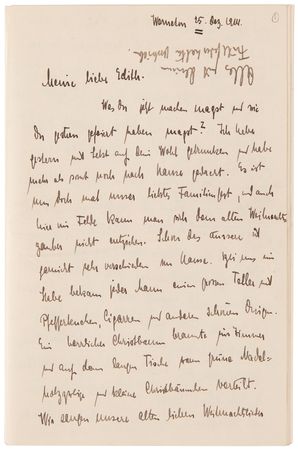 Warneton 25. Dez. 1914.
①
Alles mit Deinem
Füllfederhalter geschrieben.
Meine liebe Edith.
Was Du jetzt machen magst und wie
Du gestern gefeiert haben magst? Ich habe
gestern mit Sekt auf Dein Wohl getrunken und habe
mehr als sonst noch nach Hause gedacht. Es ist
nun doch mal unser liebstes Familienfest, und auch
hier im Felde kann man sich dem alten Weihnachts-
zauber nicht entziehen. Schon das äussere ist
garnicht sehr verschieden von Hause. Bei uns im
Stabe bekam jeder Mann einen grossen Teller mit
Pfefferkuchen, Cigarren und anderen schönen Dingen.
Ein herrlicher Christbaum brannte im Zimmer
und auf dem langen Tische waren grüne Nadel-
holzzweige und kleine Christbäumchen verteilt.
Wir sangen unsere alten lieben Weihnachtslieder